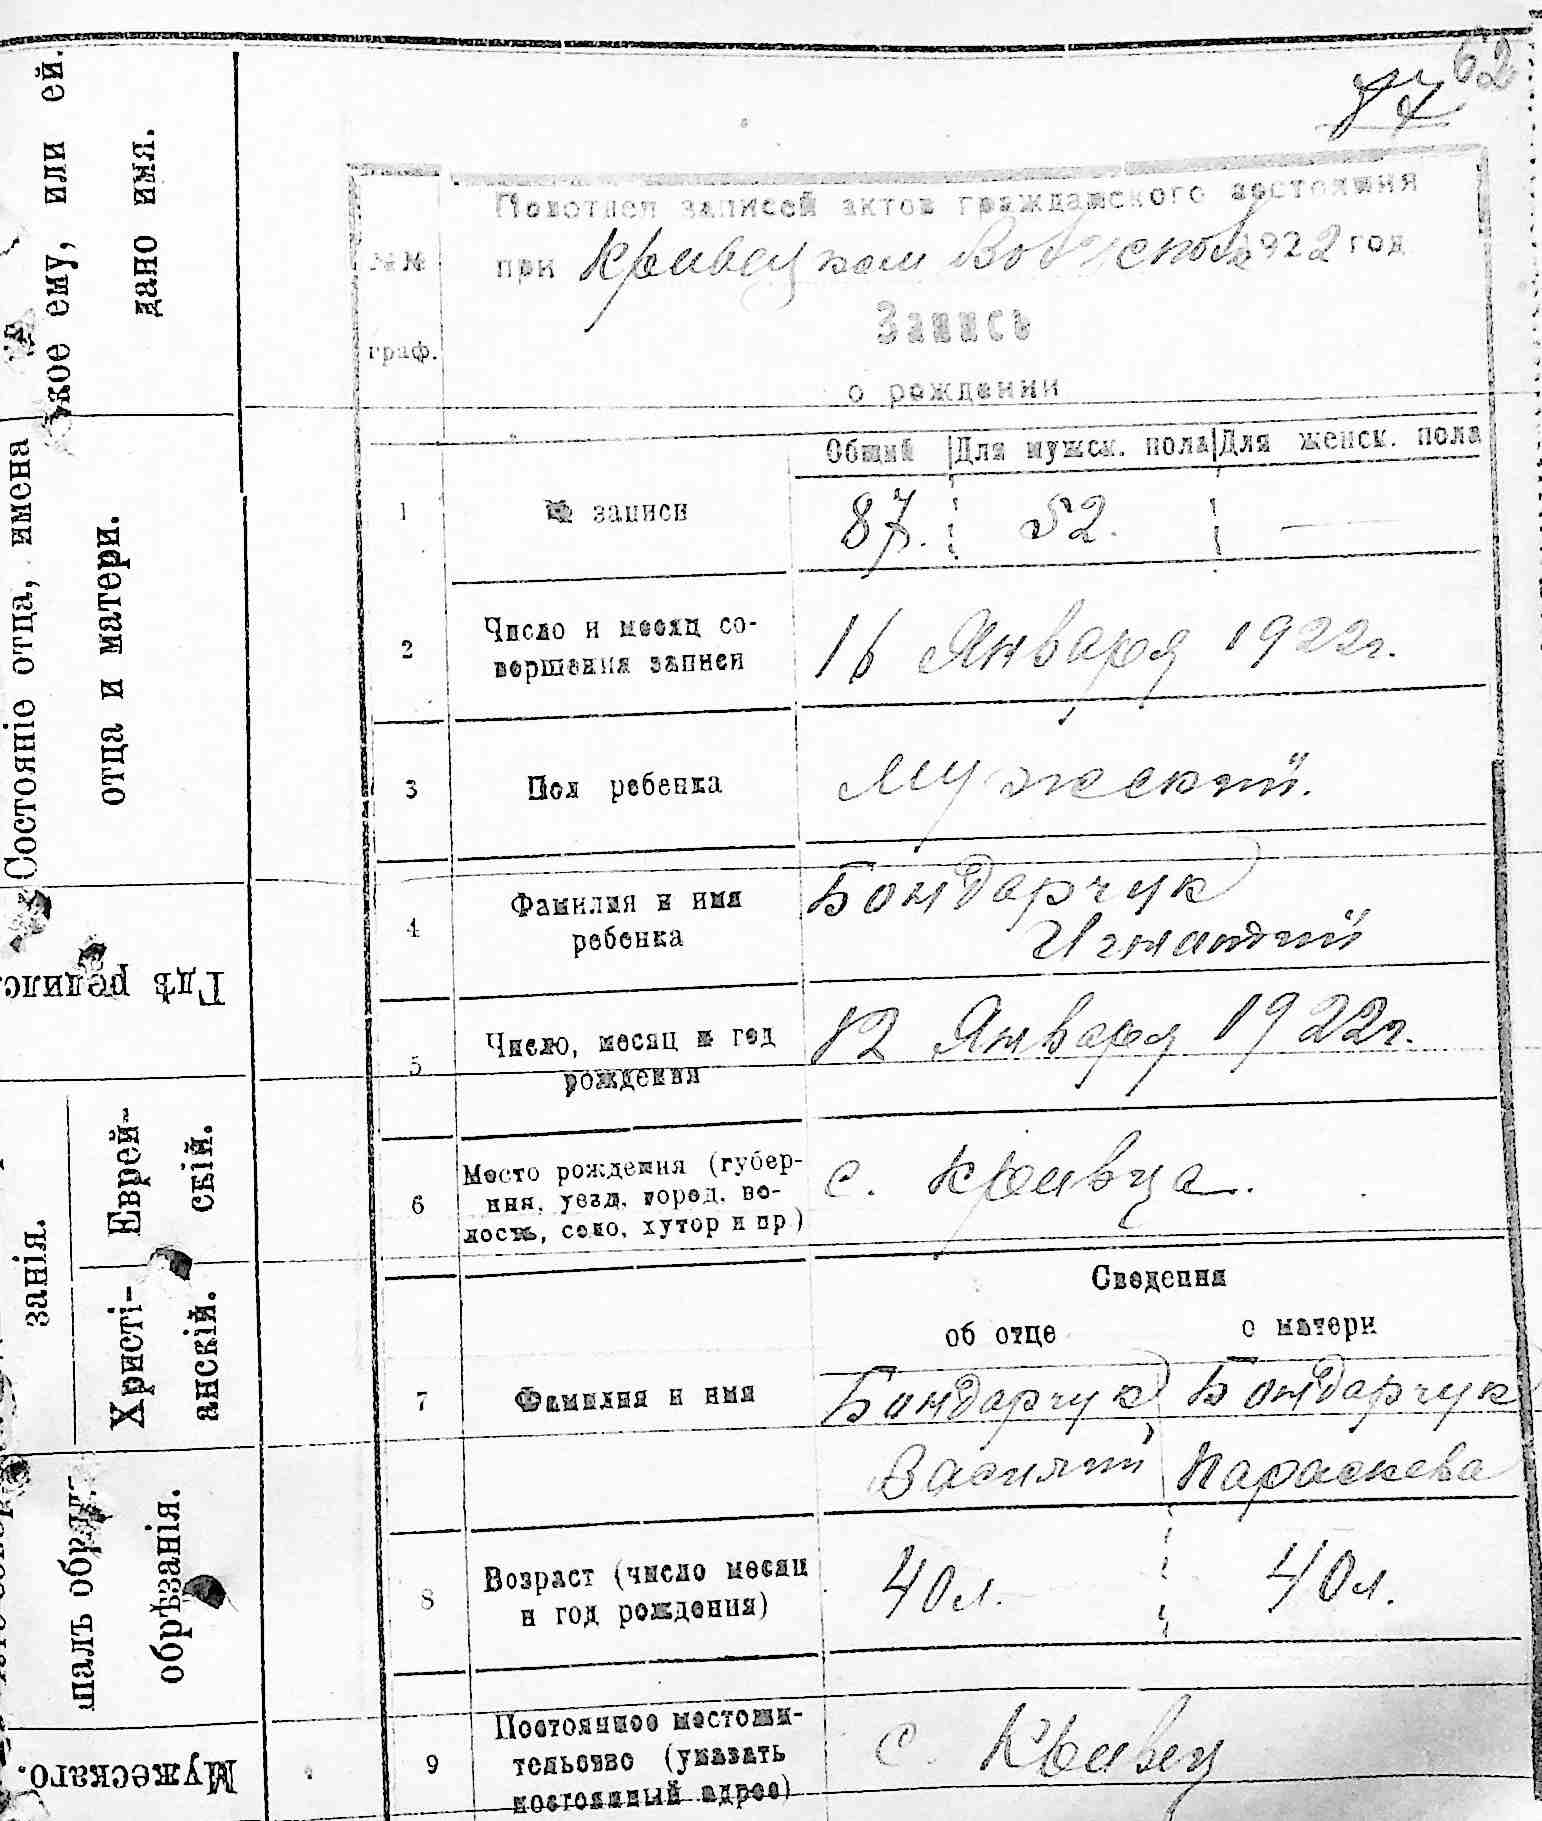 62
87
кое ему, или ей.
дано имя.
Состояніе отца, имена
отца и матери.
Гдѣ родилс
занія.
Еврей-
скій.
Христі-
анскій.
шалъ обряд
обрѣзанія.
Мужескаго.
Подотдел записей актов гражданского состояния
№№
при Кривецком 1922 год
граф.
Запись
о рождении
Общий Для мужск. пола Для женск. пола
1 № записи 87. 52. —
2 Число и месяц со-
вершения записи
16 Января 1922г.
3 Пол ребенка Мужеский.
4 Фамилия и имя
ребенка
Бондарчук
Игнатий
5 Число, месяц и год
рождения
12 Января 1922г.
6 Место рождения (губер-
ния, уезд, город, во-
лость, село, хутор и пр)
с. Кривца.
Сведения
об отце о матери
7 Фамилия и имя Бондарчук Бондарчук
Василий Параскева
8 Возраст (число месяц
и год рождения)
40л. 40л.
9 Постоянное местожи-
тельство (указать
постоянный адрес)
с. Кривец